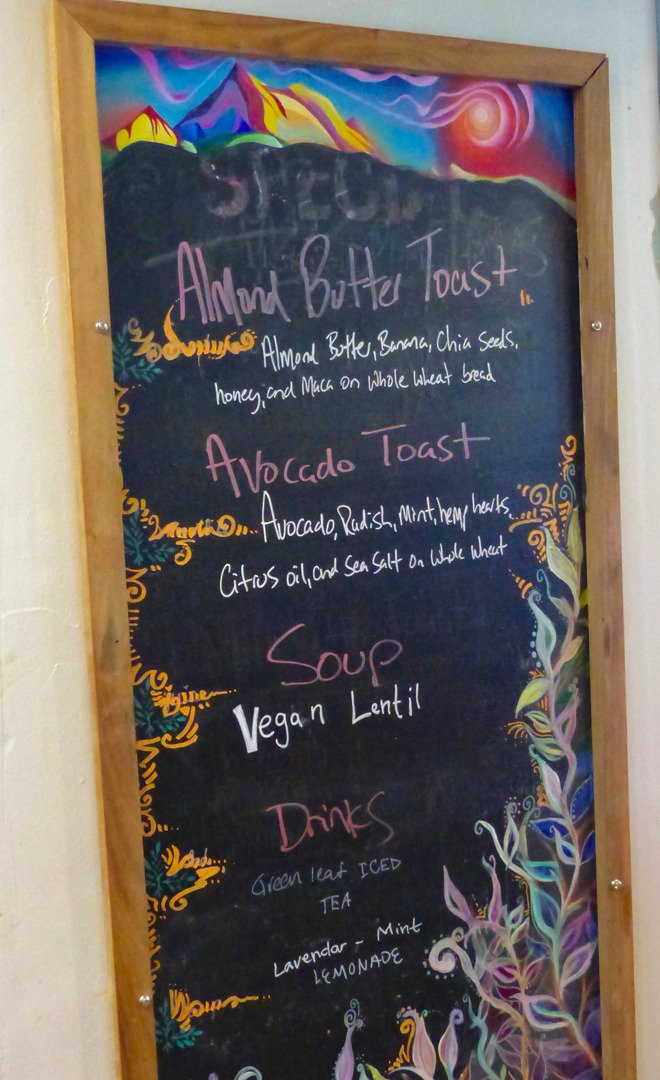 SPECIALS
Almond Butter Toast
Almond Butter, Banana, Chia Seeds,
honey, and Maca on whole wheat bread
Avocado Toast
Avocado, Radish, Mint, hemp hearts,
Citrus oil, and sea salt on whole wheat
Soup
Vegan Lentil
Drinks
Green leaf ICED
TEA
Lavendar - Mint
LEMONADE